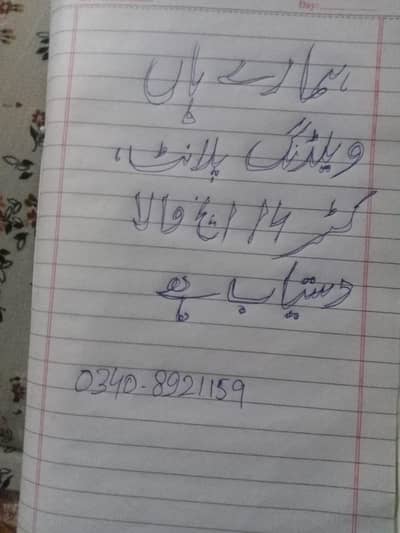 Day:
ہمارے ہاں
ویلڈنگ پلانٹ،
کٹر 14 انچ والا
دستیاب ہے
0340-8921159